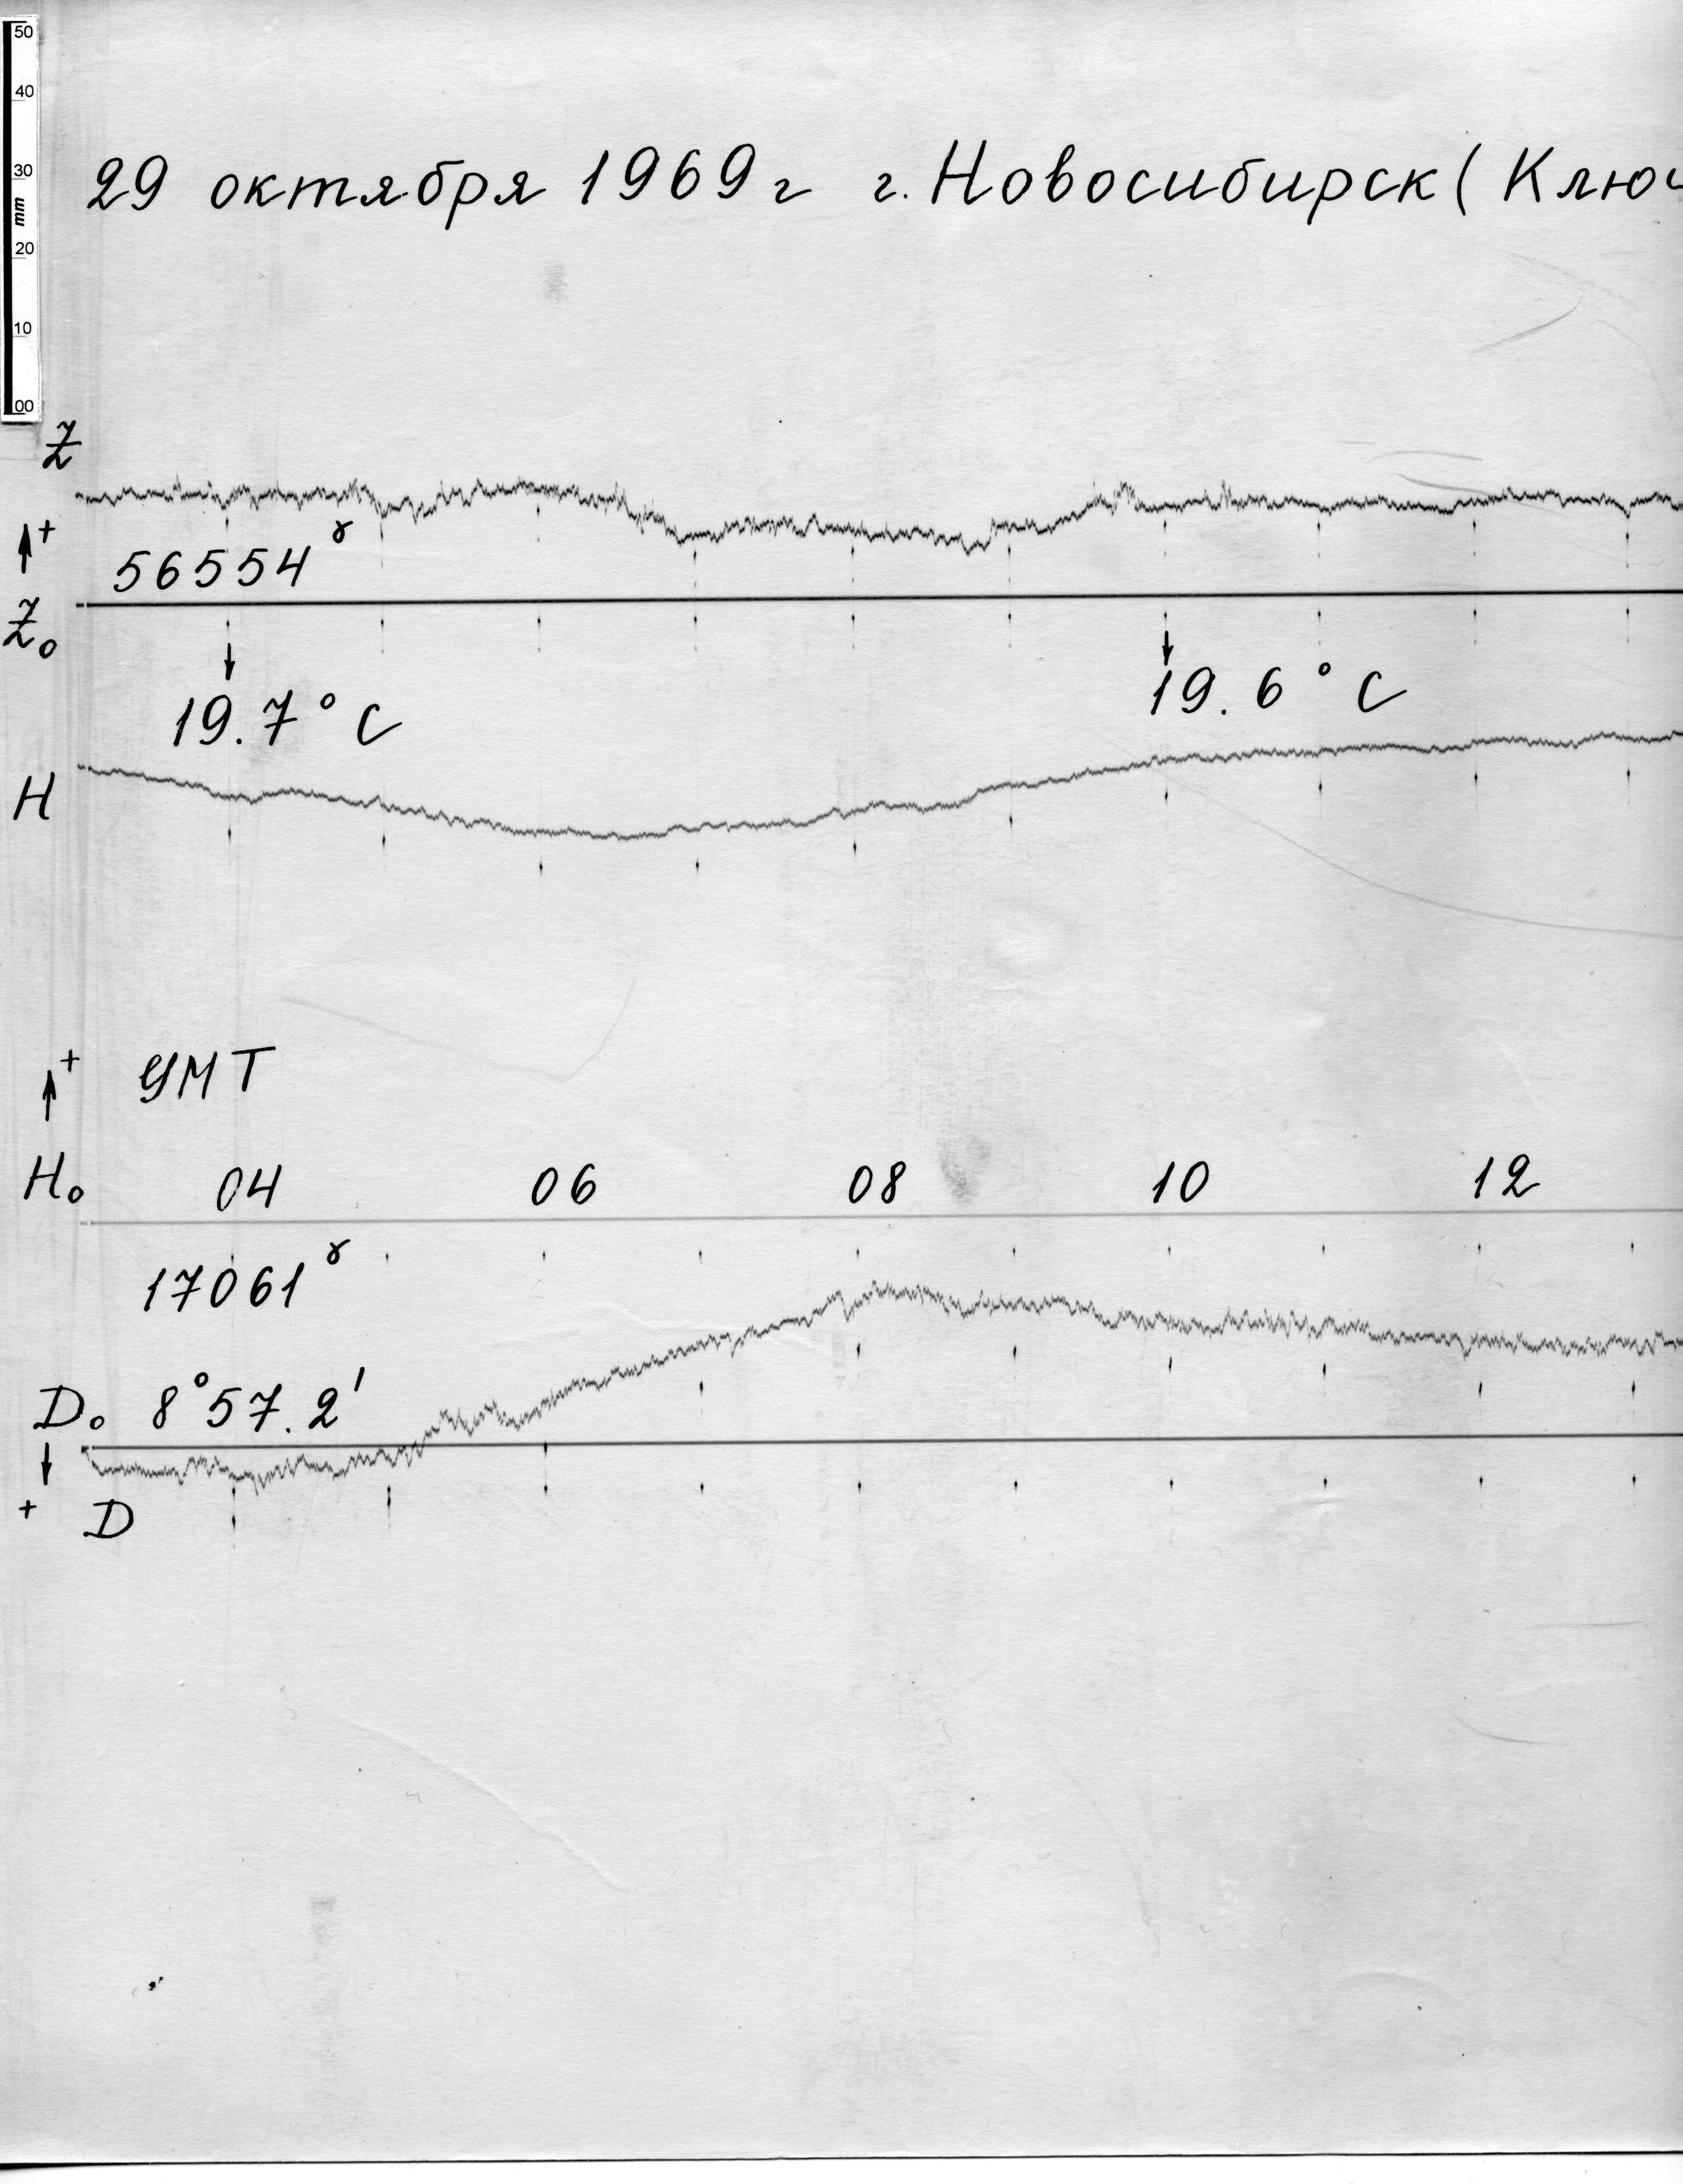 50
40
30
mm
20
10
00
29 октября 1969 г г. Новосибирск ( Ключ
Z
+
56554 γ
Z₀
19.7° C
19.6° C
H
+
УМТ
H₀ 04 06 08 10 12
17061 γ
D₀ 8°57.2'
+ D